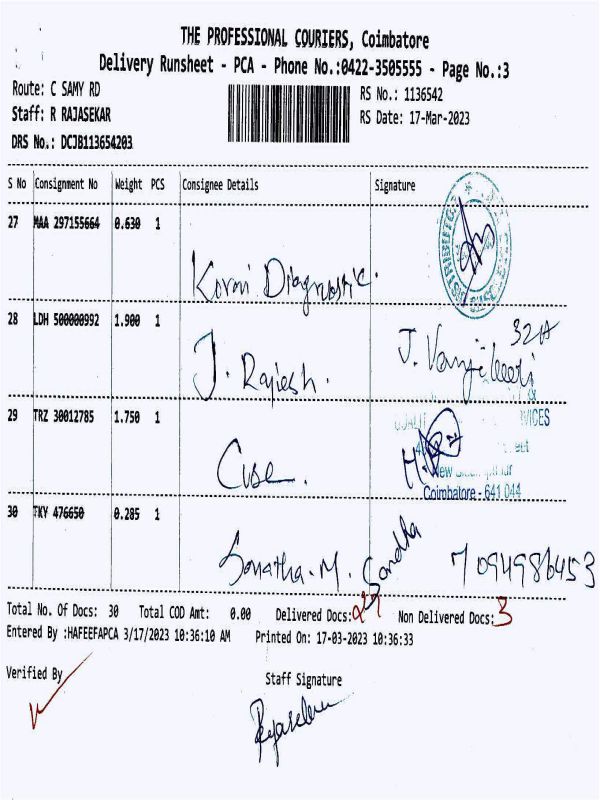 THE PROFESSIONAL COURIERS, Coimbatore
Delivery Runsheet - PCA - Phone No.:0422-3505555 - Page No.:3
Route: C SAMY RD
RS No.: 1136542
Staff: R RAJASEKAR
RS Date: 17-Mar-2023
DRS No.: DCJB113654203
S No Consignment No Weight PCS Consignee Details Signature
27 MAA 297155664 0.630 1
DISTRIBUTOR
Diagnostic.
28 LDH 500000992 1.900 1
32A
J. Rajesh. J.
29 TRZ 30012785 1.750 1
VICES
Coimbatore - 641 044
30 TKY 476650 0.285 1
M. 7094986453
Total No. Of Docs: 30 Total COD Amt: 0.00 Delivered Docs: 27 Non Delivered Docs: 3
Entered By :HAFEEFAPCA 3/17/2023 10:36:10 AM Printed On: 17-03-2023 10:36:33
Verified By
Staff Signature